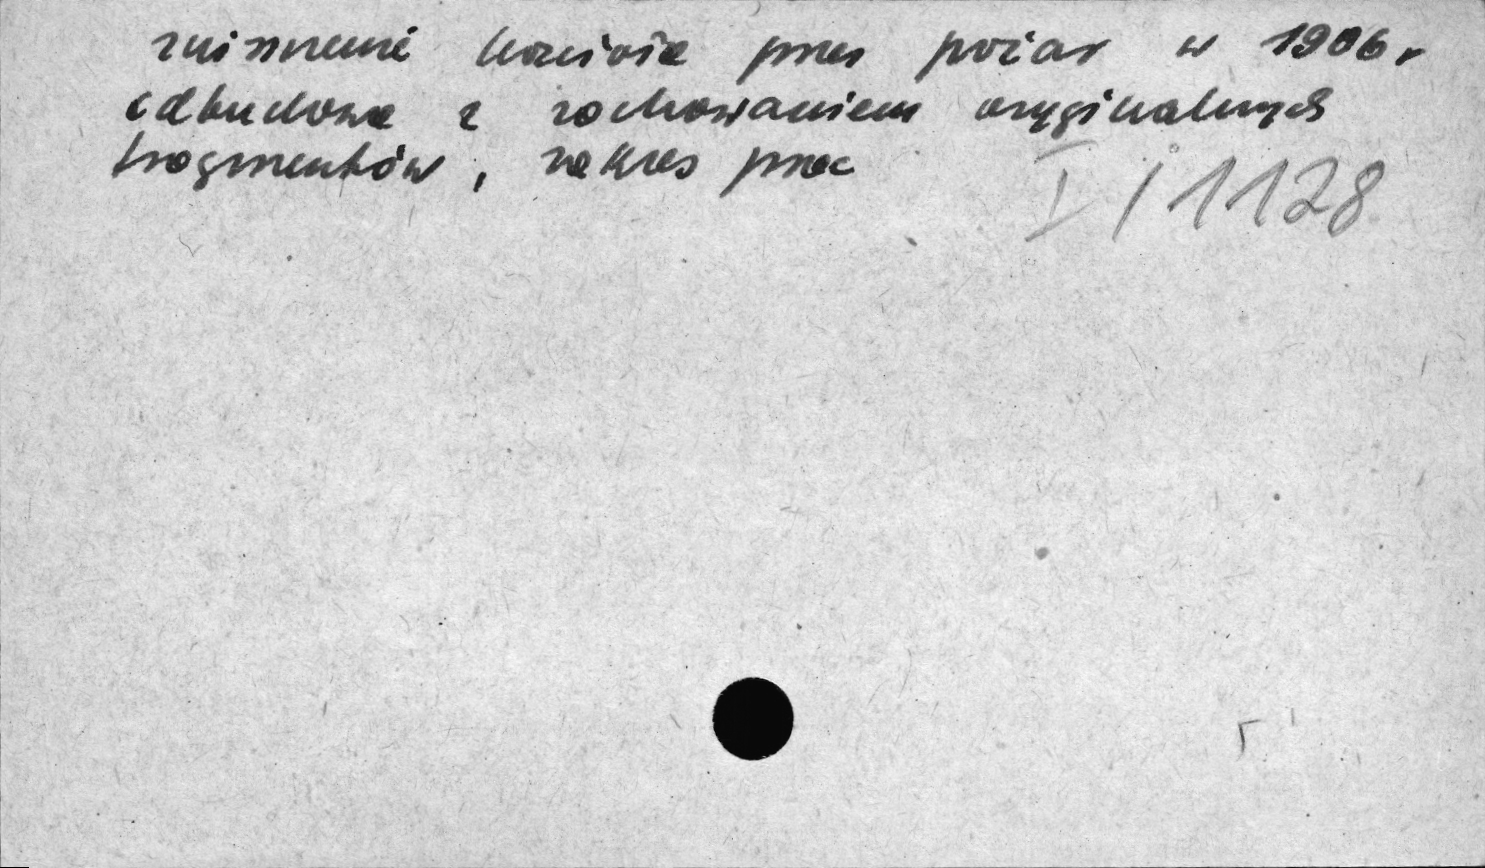 zniszczenie kościoła przez pożar w 1906 r
odbudowa z zachowaniem oryginalnych
fragmentów, zakres prac
I/1128